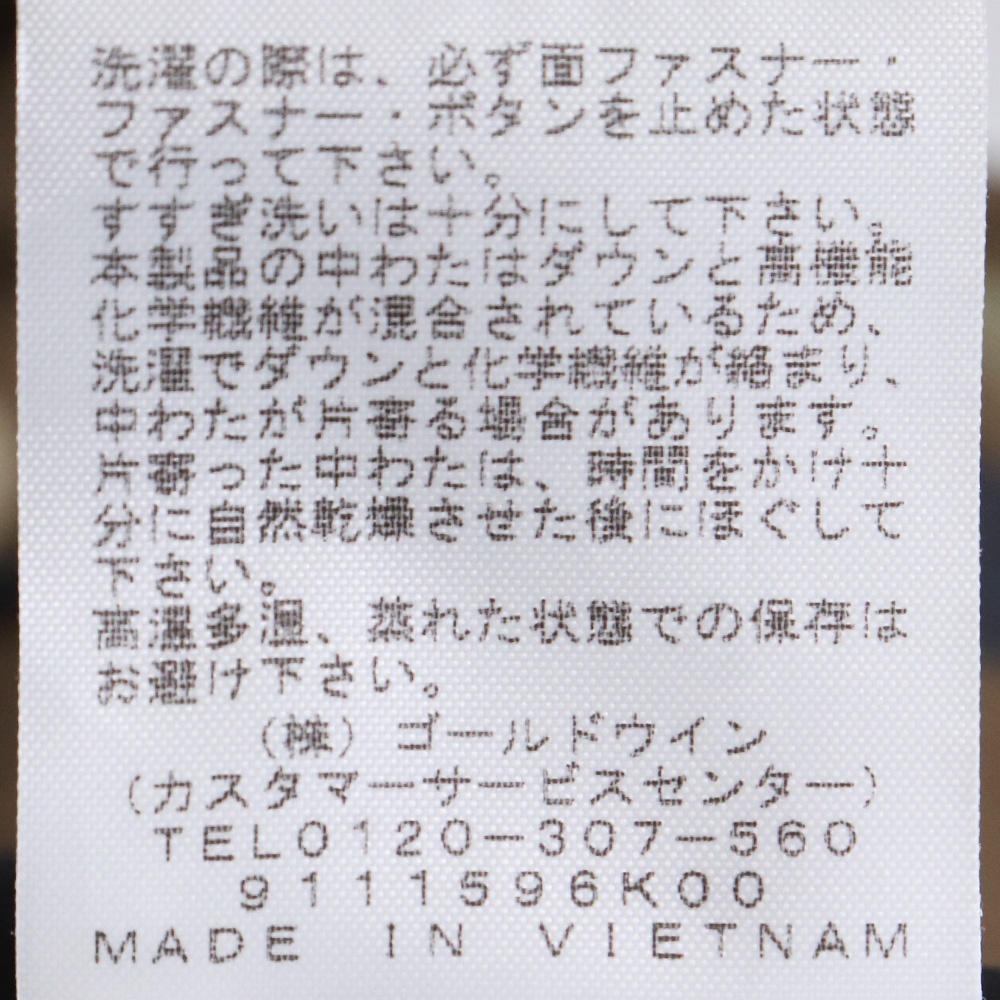 洗濯の際は、必ず面ファスナー・
ファスナー・ボタンを止めた状態
で行って下さい。
すすぎ洗いは十分にして下さい。
本製品の中わたはダウンと高機能
化学繊維が混合されているため、
洗濯でダウンと化学繊維が絡まり、
中わたが片寄る場合があります。
片寄った中わたは、時間をかけ十
分に自然乾燥させた後にほぐして
下さい。
高温多湿、蒸れた状態での保存は
お避け下さい。
(株)ゴールドウイン
(カスタマーサービスセンター)
TEL0120-307-560
9111596K00
MADE IN VIETNAM